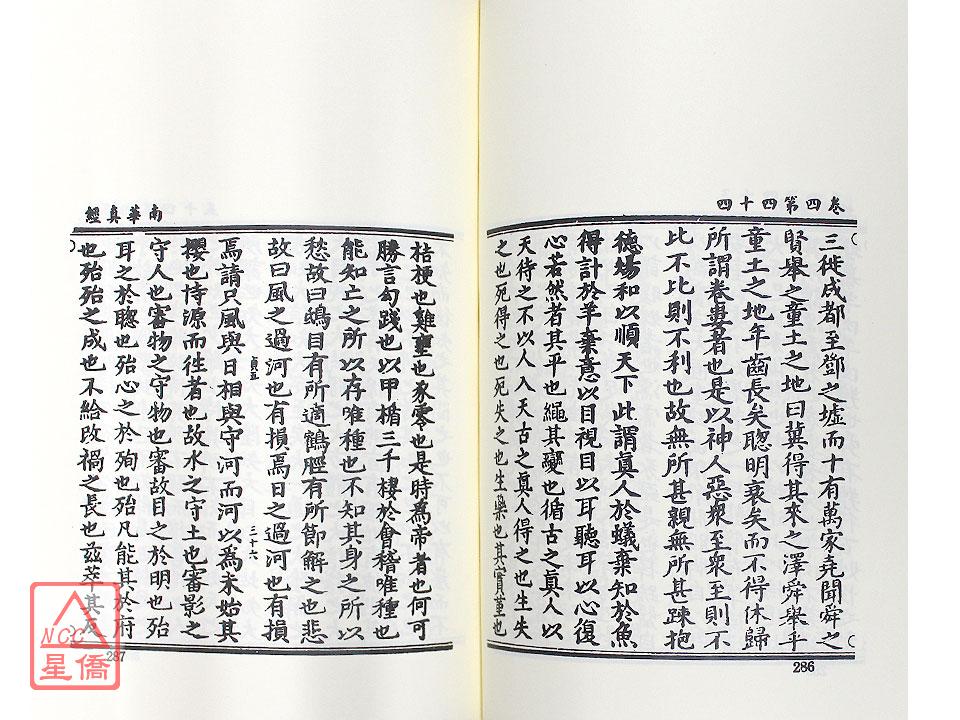 卷四第四十四
三徙成都至鄧之墟而十有萬家堯聞舜之
賢舉之童土之地曰冀得其來之澤舜舉乎
童土之地年齒長矣聦明衰矣而不得休歸
所謂卷婁者也是以神人惡衆至衆至則不
比不比則不利也故無所甚親無所甚踈抱
德煬和以順天下此謂真人於蟻棄知於魚
得計於羊棄意以目視目以耳聽耳以心復
心若然者其平也繩其變也循古之真人以
天待之不以人入天古之真人得之也生失
之也死得之也死失之也生藥也其實堇也
286
南華真經
桔梗也雞壅也豕零也是時為帝者也何可
勝言勾踐也以甲楯三千棲於會稽唯種也
能知亡之所以存唯種也不知其身之所以
愁故曰鴟目有所適鶴脛有所節解之也悲
故曰風之過河也有損焉日之過河也有損
焉請只風與日相與守河而河以為未始其
攖也恃源而往者也故水之守土也審影之
守人也審物之守物也審故目之於明也殆
耳之於聦也殆心之於殉也殆凡能其於府
也殆殆之成也不給改禍之長也茲萃其反
三十六
287
NCC
星僑